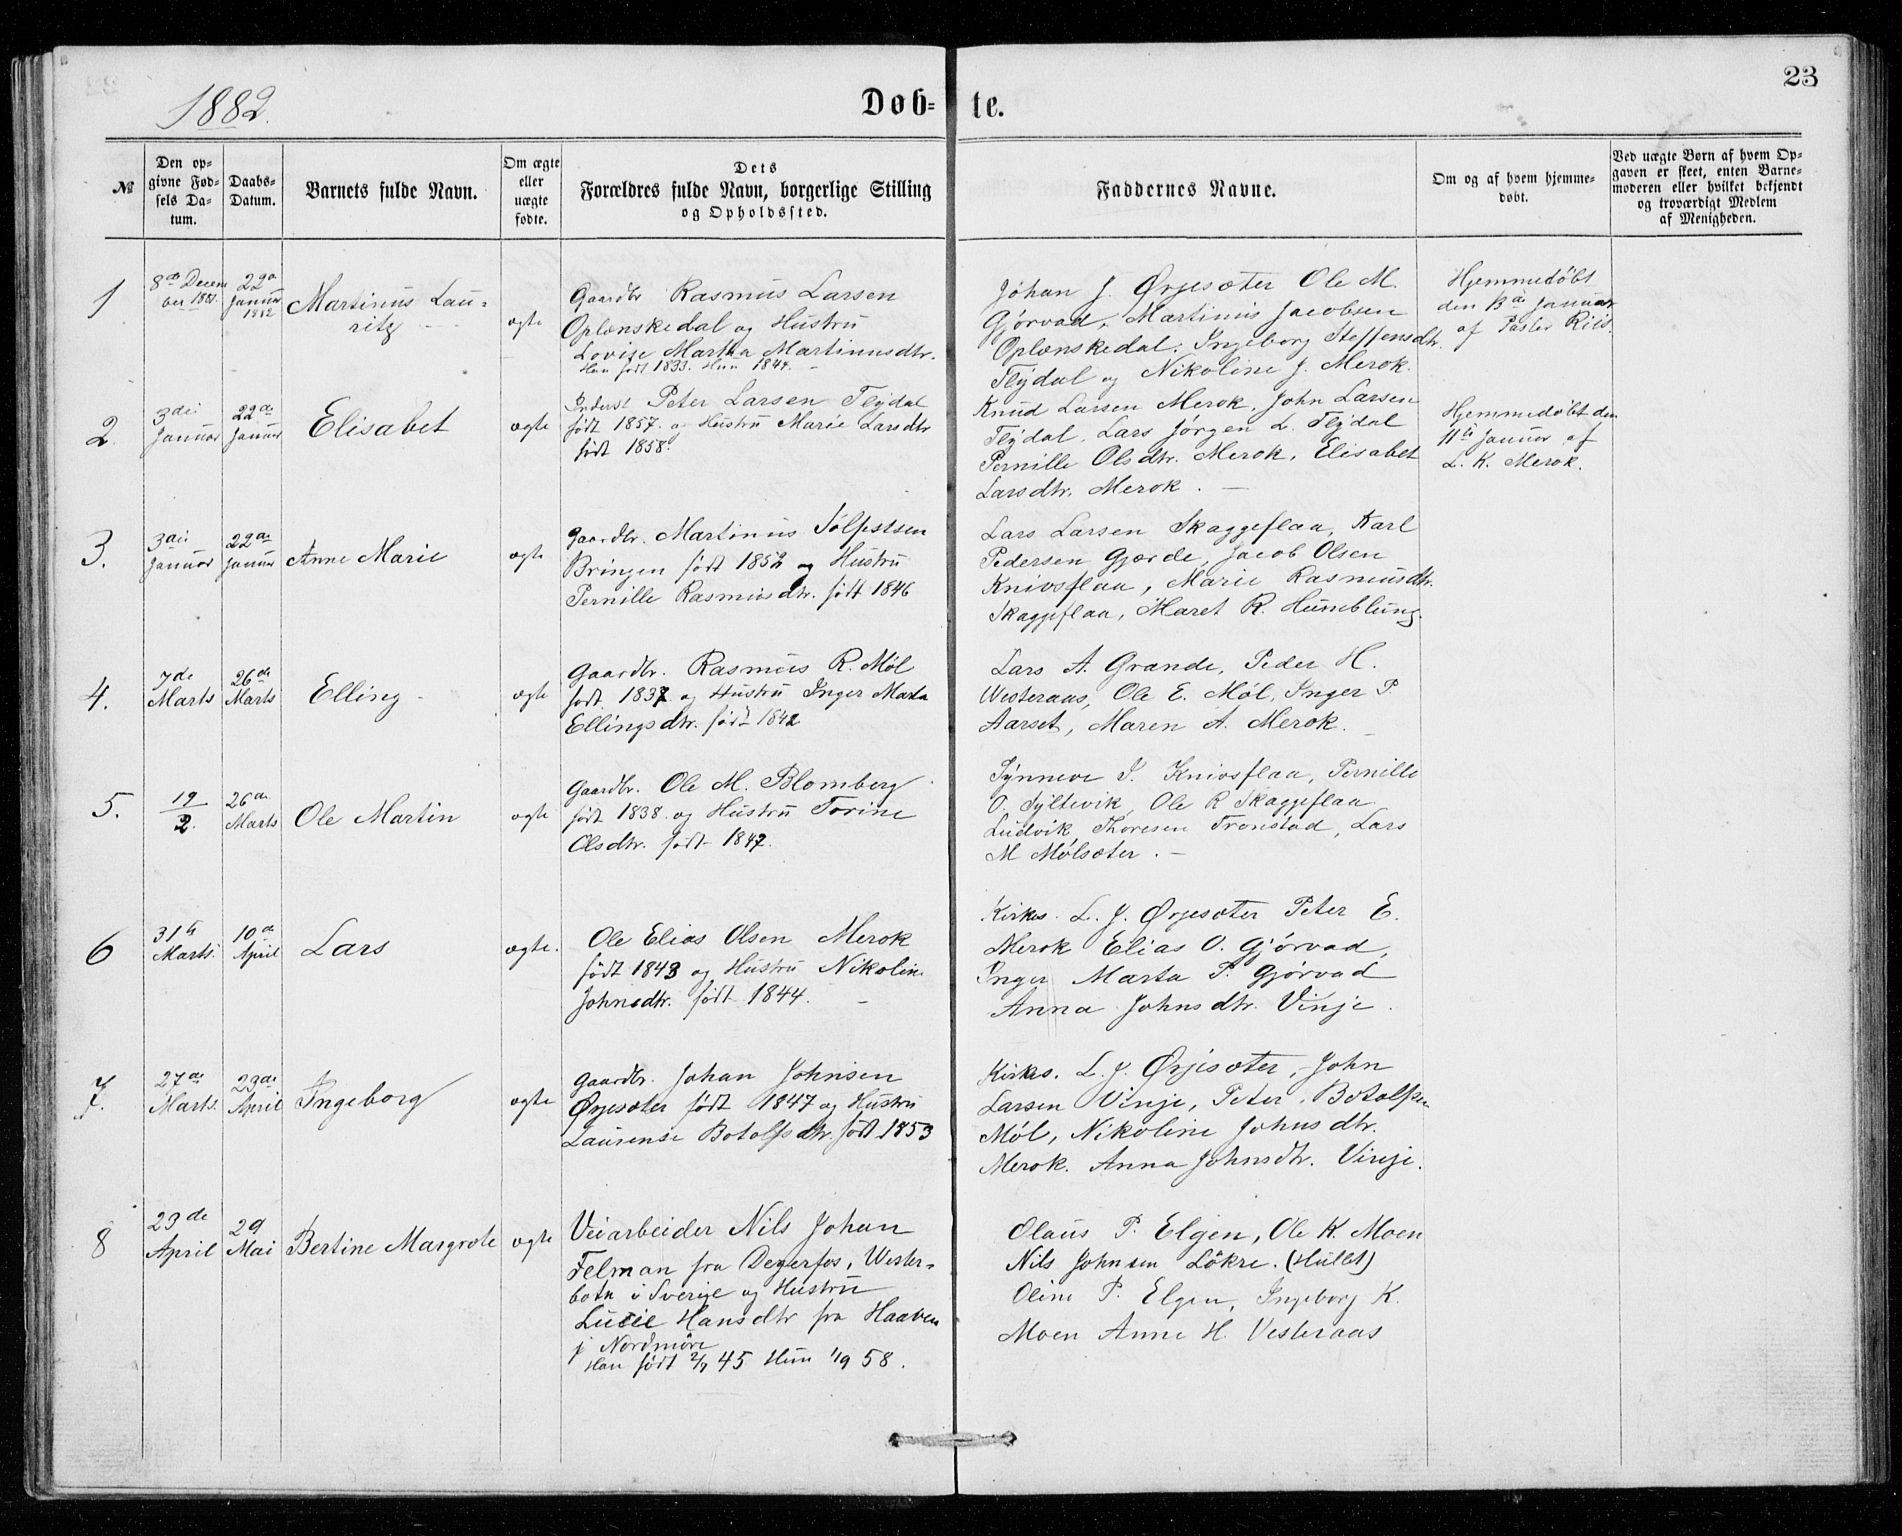 23
1882.
Døb- te.
№
Den opgivne Fødsels Datum.
Daabs-Datum.
Barnets fulde Navn.
Om ægte eller uægte fødte.
Dets Forældres fulde Navn, borgerlige Stilling og Opholdssted.
Faddernes Navne.
Om og af hvem hjemmedøbt.
Ved uægte Børn af hvem Opgaven er skeet, enten Barnemoderen eller hvilket bekjendt og troværdigt Medlem af Menigheden.
1
8de Decem
ber 1881.
22de
Januar
1882
Martinus Lau-
ritz
ægte
Gaardbr Rasmus Larsen
Oplænskedal og Hustru
Lovise Martha Martinusdtr.
Han født 1833. Hun 1844.
Johan J. Ørjesæter Ole M.
Gjørvad, Martinus Jacobsen
Oplænskedal. Ingeborg Steffensdtr.
Flydal og Nikoline J. Merok.
Hjemmedøbt
den 13de Januar
af Pastor Riis.
2.
3die
Januar
22de
Januar
Elisabet
ægte
Inderst Peter Larsen Flydal
født 1857. og Hustru Marie Larsdtr
født 1858.
Knud Larsen Merok, John Larsen
Flydal, Lars Jørgen L. Flydal
Pernille Olsdtr. Merok, Elisabet
Larsdtr. Merok.
Hjemmedøbt den
11te Januar af
L. K. Merok.
3.
3die
Januar
22de
Januar
Anne Marie
ægte
Gaardbr. Martinus Sølfestsen
Bringen født 1852 og Hustru
Pernille Rasmusdtr. født 1846
Lars Larsen Skaggeflaa, Karl
Pedersen Gjærde, Jacob Olsen
Knivsflaa, Marie Rasmusdtr.
Skaggeflaa, Maret R. Humblung.
4.
7de
Marts
26de
Marts
Elling
ægte
Gaardbr. Rasmus R. Møl
født 1837 og Hustru Inger Marta
Ellingsdtr. født 1842
Lars A. Grande, Peder H.
Westeraas, Ole E. Møl, Inger P.
Aarset, Maren A. Merok.
5.
19/2.
26de
Marts
Ole Martin
ægte
Gaardbr. Ole M. Blomberg
født 1838. og Hustru Torine
Olsdtr. født 1847.
Synneve I. Knivsflaa, Pernille
O. Syltevik, Ole R Skaggeflaa
Ludvik Thoresen Tronstad, Lars
M Mølsæter.
6
31te
Marts
10de
April
Lars
ægte.
Ole Elias Olsen Merok
født 1843 og Hustru Nikoline
Johnsdtr. født 1844.
Kirkes. L. J. Ørjesæter Peter E.
Merok Elias O. Gjørvad,
Inger Marta P. Gjørvad
Anna Johnsdtr. Vinje.
7.
27de
Marts.
23de
April
Ingeborg
ægte
Gaardbr. Johan Johnsen
Ørjesæter født 1847 og Hustru
Laurense Botolfsdtr. født 1853
Kirkes. L. J. Ørjesæter, John
Larsen Vinje, Peter Botolfsen
Møl, Nikoline Johnsdtr.
Merok. Anna Johnsdtr. Vinje.
8
23de
April
29
Mai
Bertine Margrete
ægte
Veiarbeider Nils Johan
Felman fra Degerfos, Wester-
botn i Sverige og Hustru
Lucie Hansdtr fra Haaven
j Nordmøre
Han født 2/7 45 Hun 1/9 58.
Olaus P. Elgen, Ole K. Moen
Nils Johnsen Løkre. (Hullet)
Oline P. Elgen, Ingeborg K.
Moen Anne H. Vesteraas